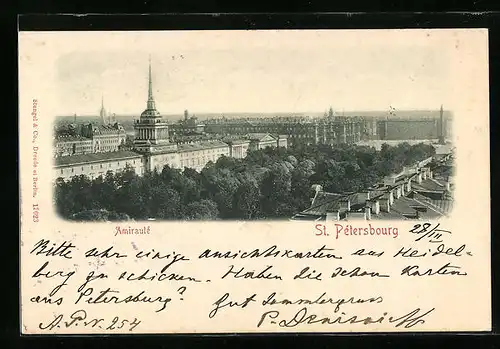 Stengel & Co., Dresde et Berlin. 17023
Amirauté
St. Pétersbourg.
28/II
Bitte sehr einige Ansichtskarten aus Heidel-
berg zu schicken. Haben Sie schon Karten
aus Petersburg? Gut Sammlergruss
A.P.N. 254